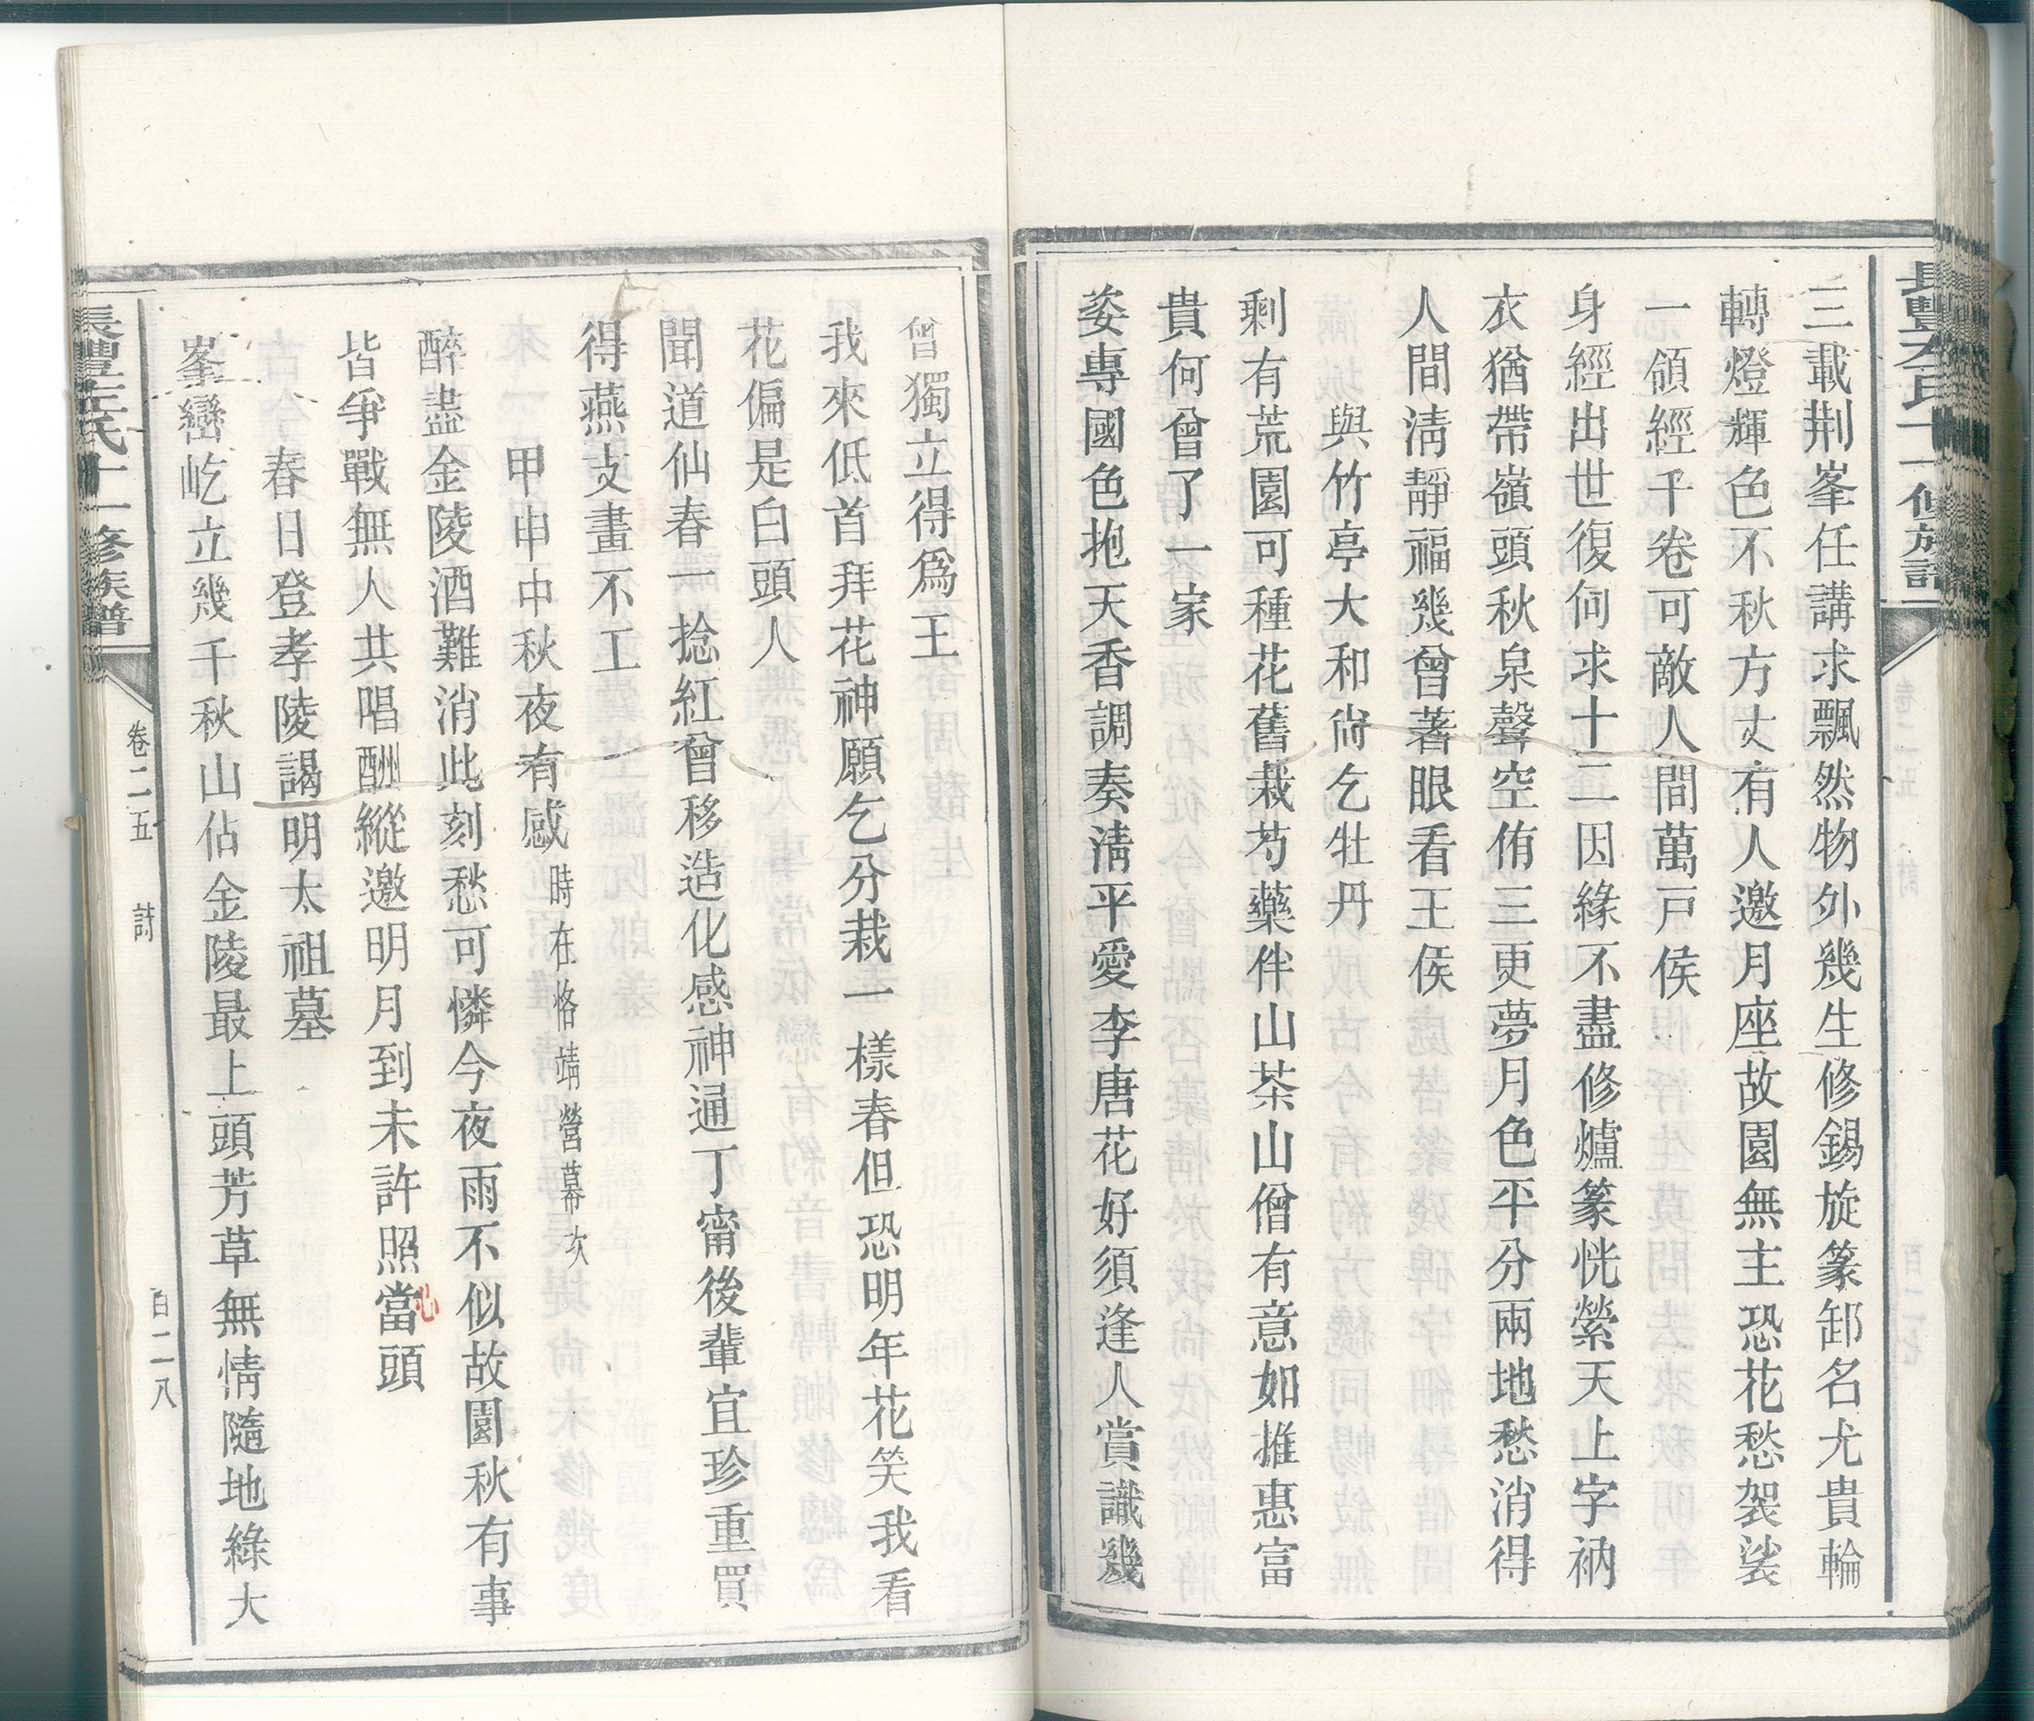 長豐左氏十一修族譜
三載荆峯任講求飄然物外幾生修錫旋篆卸名尤貴輪
轉燈輝色不秋方丈有人邀月座故園無主恐花愁袈裟
一領經千卷可敵人間萬戸侯
身經出世復何求十二因緣不盡修爐篆恍縈天上字衲
衣猶帶嶺頭秋泉聲空侑三更夢月色平分兩地愁消得
人間淸靜福幾曾著眼看王侯
與竹亭大和尙乞牡丹
剩有荒園可種花舊栽芍藥伴山茶山僧有意如推惠富
貴何曾了一家
姿專國色抱天香調奏淸平愛李唐花好須逢人賞識幾
曾獨立得爲王
我來低首拜花神願乞分栽一樣春但恐明年花笑我看
花偏是白頭人
聞道仙春一捻紅曾移造化感神通丁甯後輩宜珍重買
得燕支畫不工
甲申中秋夜有感時在恪靖營幕次
醉盡金陵酒難消此刻愁可憐今夜雨不似故園秋有事
皆爭戰無人共唱酬縱邀明月到未許照當頭
心
春日登孝陵謁明太祖墓
峯巒屹立幾千秋山佔金陵最上頭芳草無情隨地綠大
長豐左氏十一修族譜
卷二五
詩
百二八